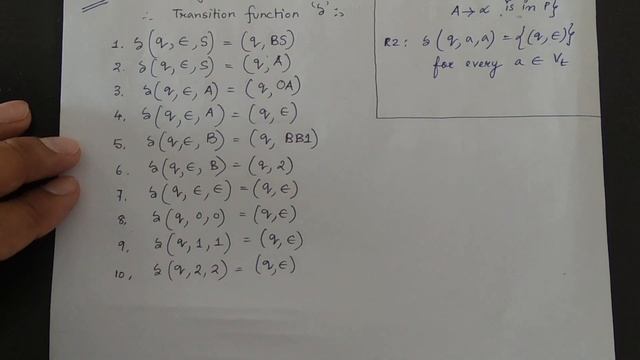 ∴ Transition function 'δ' :-
1. δ(q, ∈, S) = (q, BS)
2. δ(q, ∈, S) = (q, A)
3. δ(q, ∈, A) = (q, 0A)
4. δ(q, ∈, A) = (q, ∈)
5. δ(q, ∈, B) = (q, BB1)
6. δ(q, ∈, B) = (q, 2)
7. δ(q, ∈, ∈) = (q, ∈)
8. δ(q, 0, 0) = (q, ∈)
9. δ(q, 1, 1) = (q, ∈)
10. δ(q, 2, 2) = (q, ∈)
A → α is in P}
R2: δ(q, a, a) = {(q, ∈)}
for every a ∈ Vt